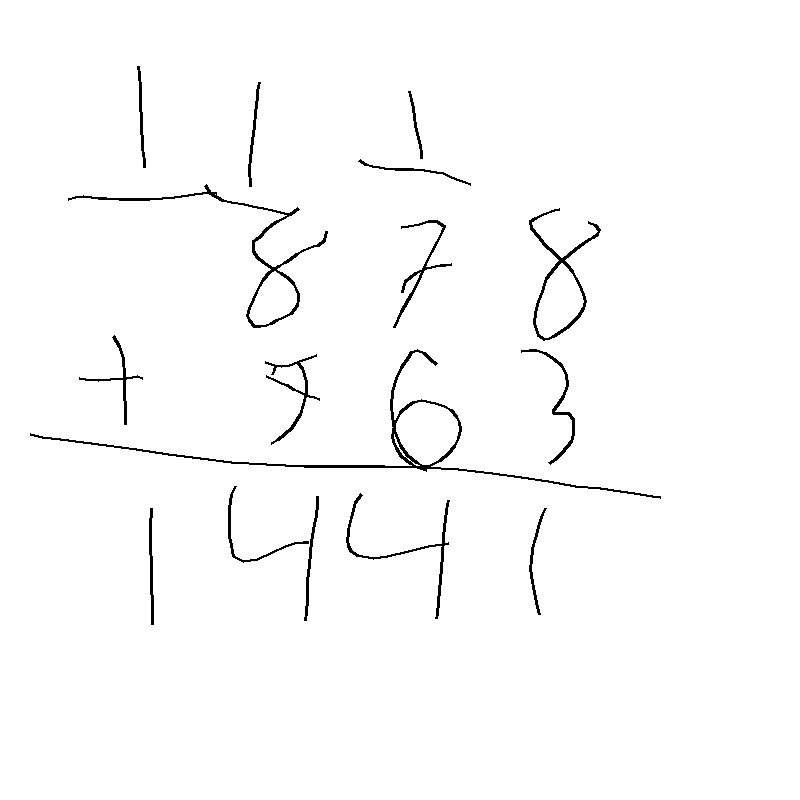 1 1 1
878
+ 563
1441